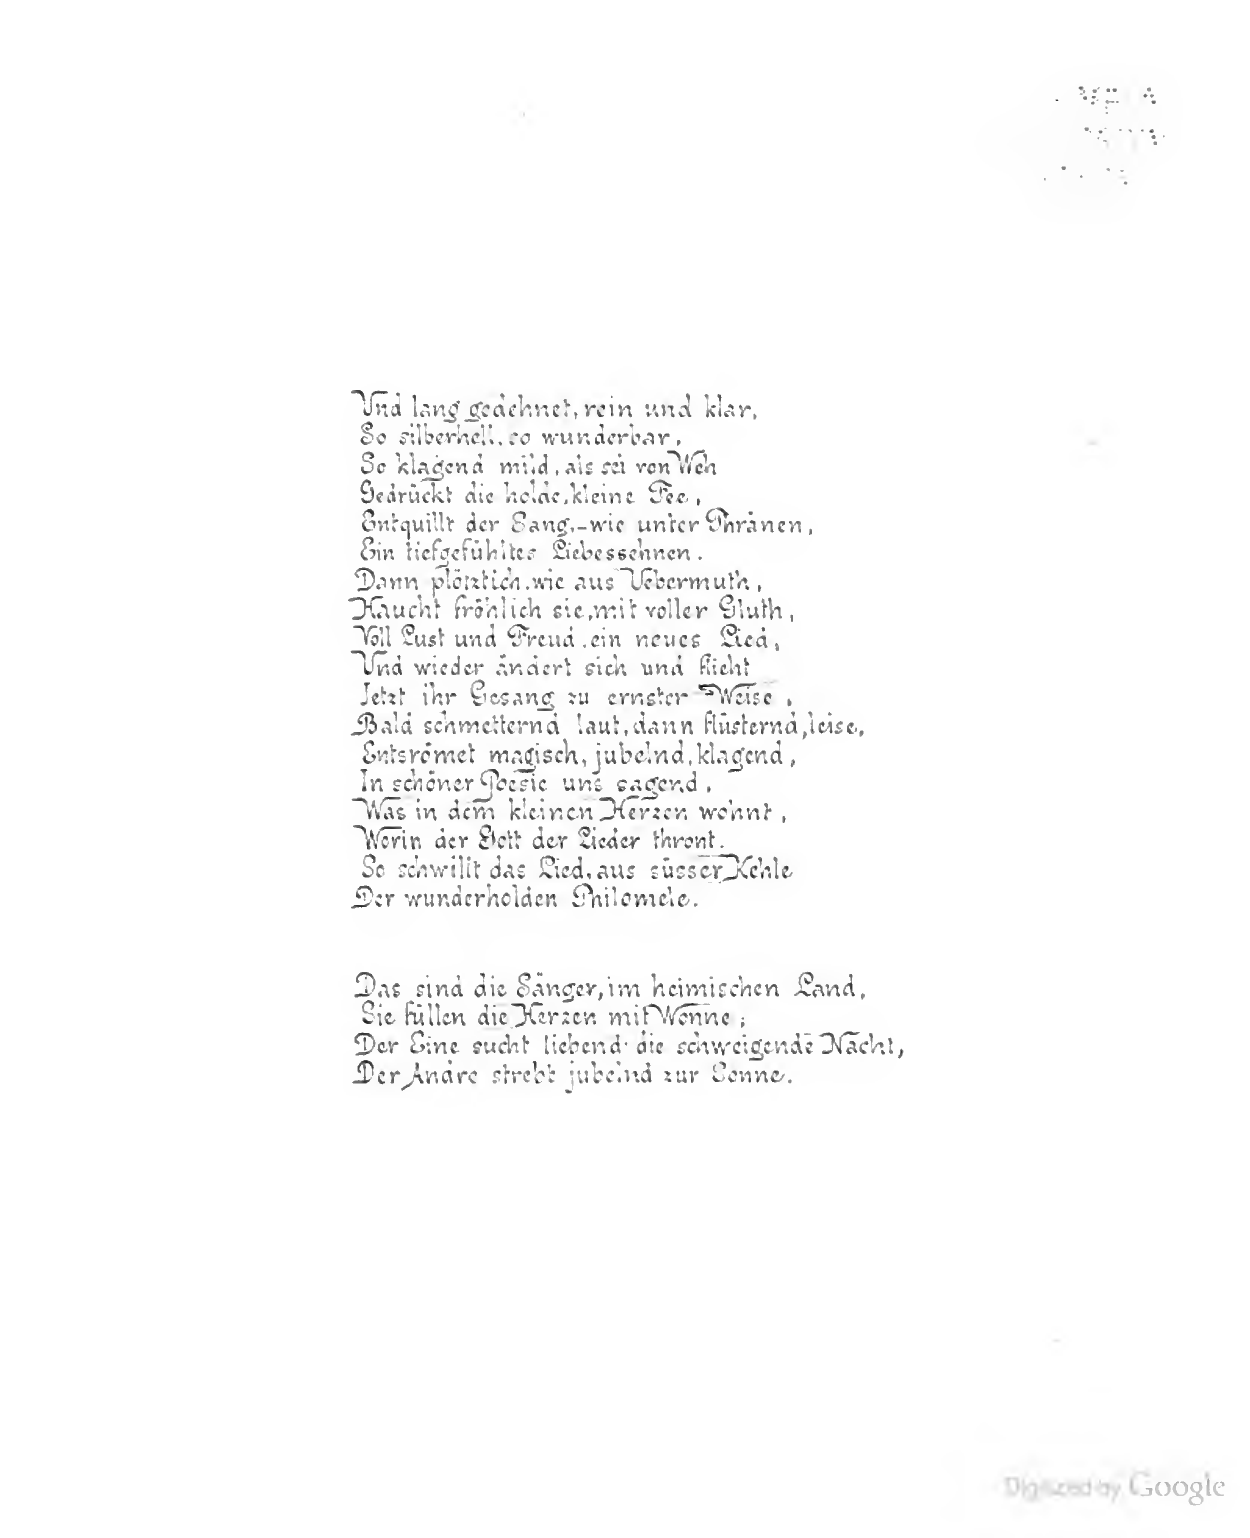 Und lang gedehnet, rein und klar,
So silberhell, so wunderbar,
So klagend mild, als sei von Weh
Gedrückt die holde, kleine Fee,
Entquillt der Sang,-wie unter Thränen,
Ein tiefgefühltes Liebessehnen.
Dann plötzlich, wie aus Uebermuth,
Haucht fröhlich sie, mit voller Gluth,
Voll Lust und Freud, ein neues Lied,
Und wieder ändert sich und flieht
Jetzt ihr Gesang zu ernster Weise,
Bald schmetternd laut, dann flüsternd, leise,
Entsrömet magisch, jubelnd, klagend,
In schöner Poesie uns sagend,
Was in dem kleinen Herzen wohnt,
Worin der Gott der Lieder thront.
So schwillt das Lied, aus süsser Kehle
Der wunderholden Philomele.
Das sind die Sänger, im heimischen Land,
Sie füllen die Herzen mit Wonne;
Der Eine sucht liebend die schweigende Nacht,
Der Andre strebt jubelnd zur Sonne.
Digitized by Google